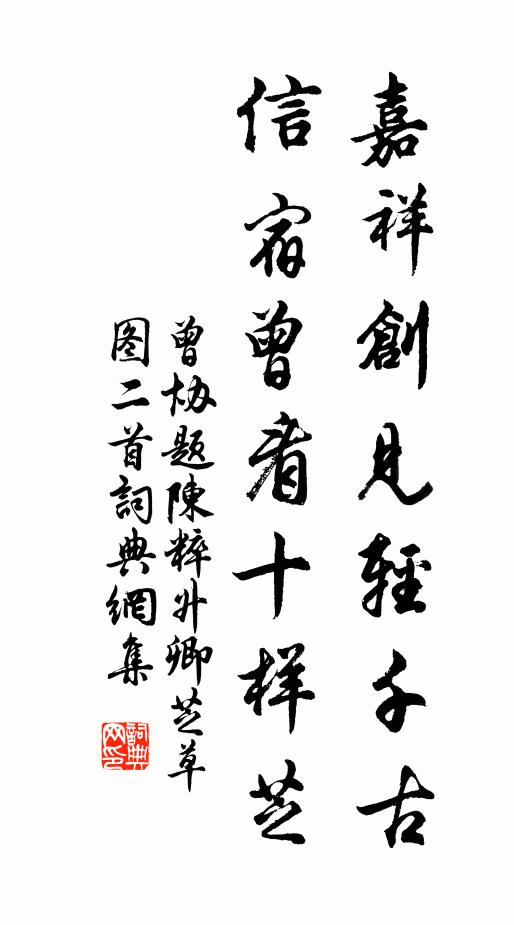 嘉祥創見輕千古
信宿曾看十样芝
曾协题陳粹升卿芝草
图二首詞典網集
詞典
网印